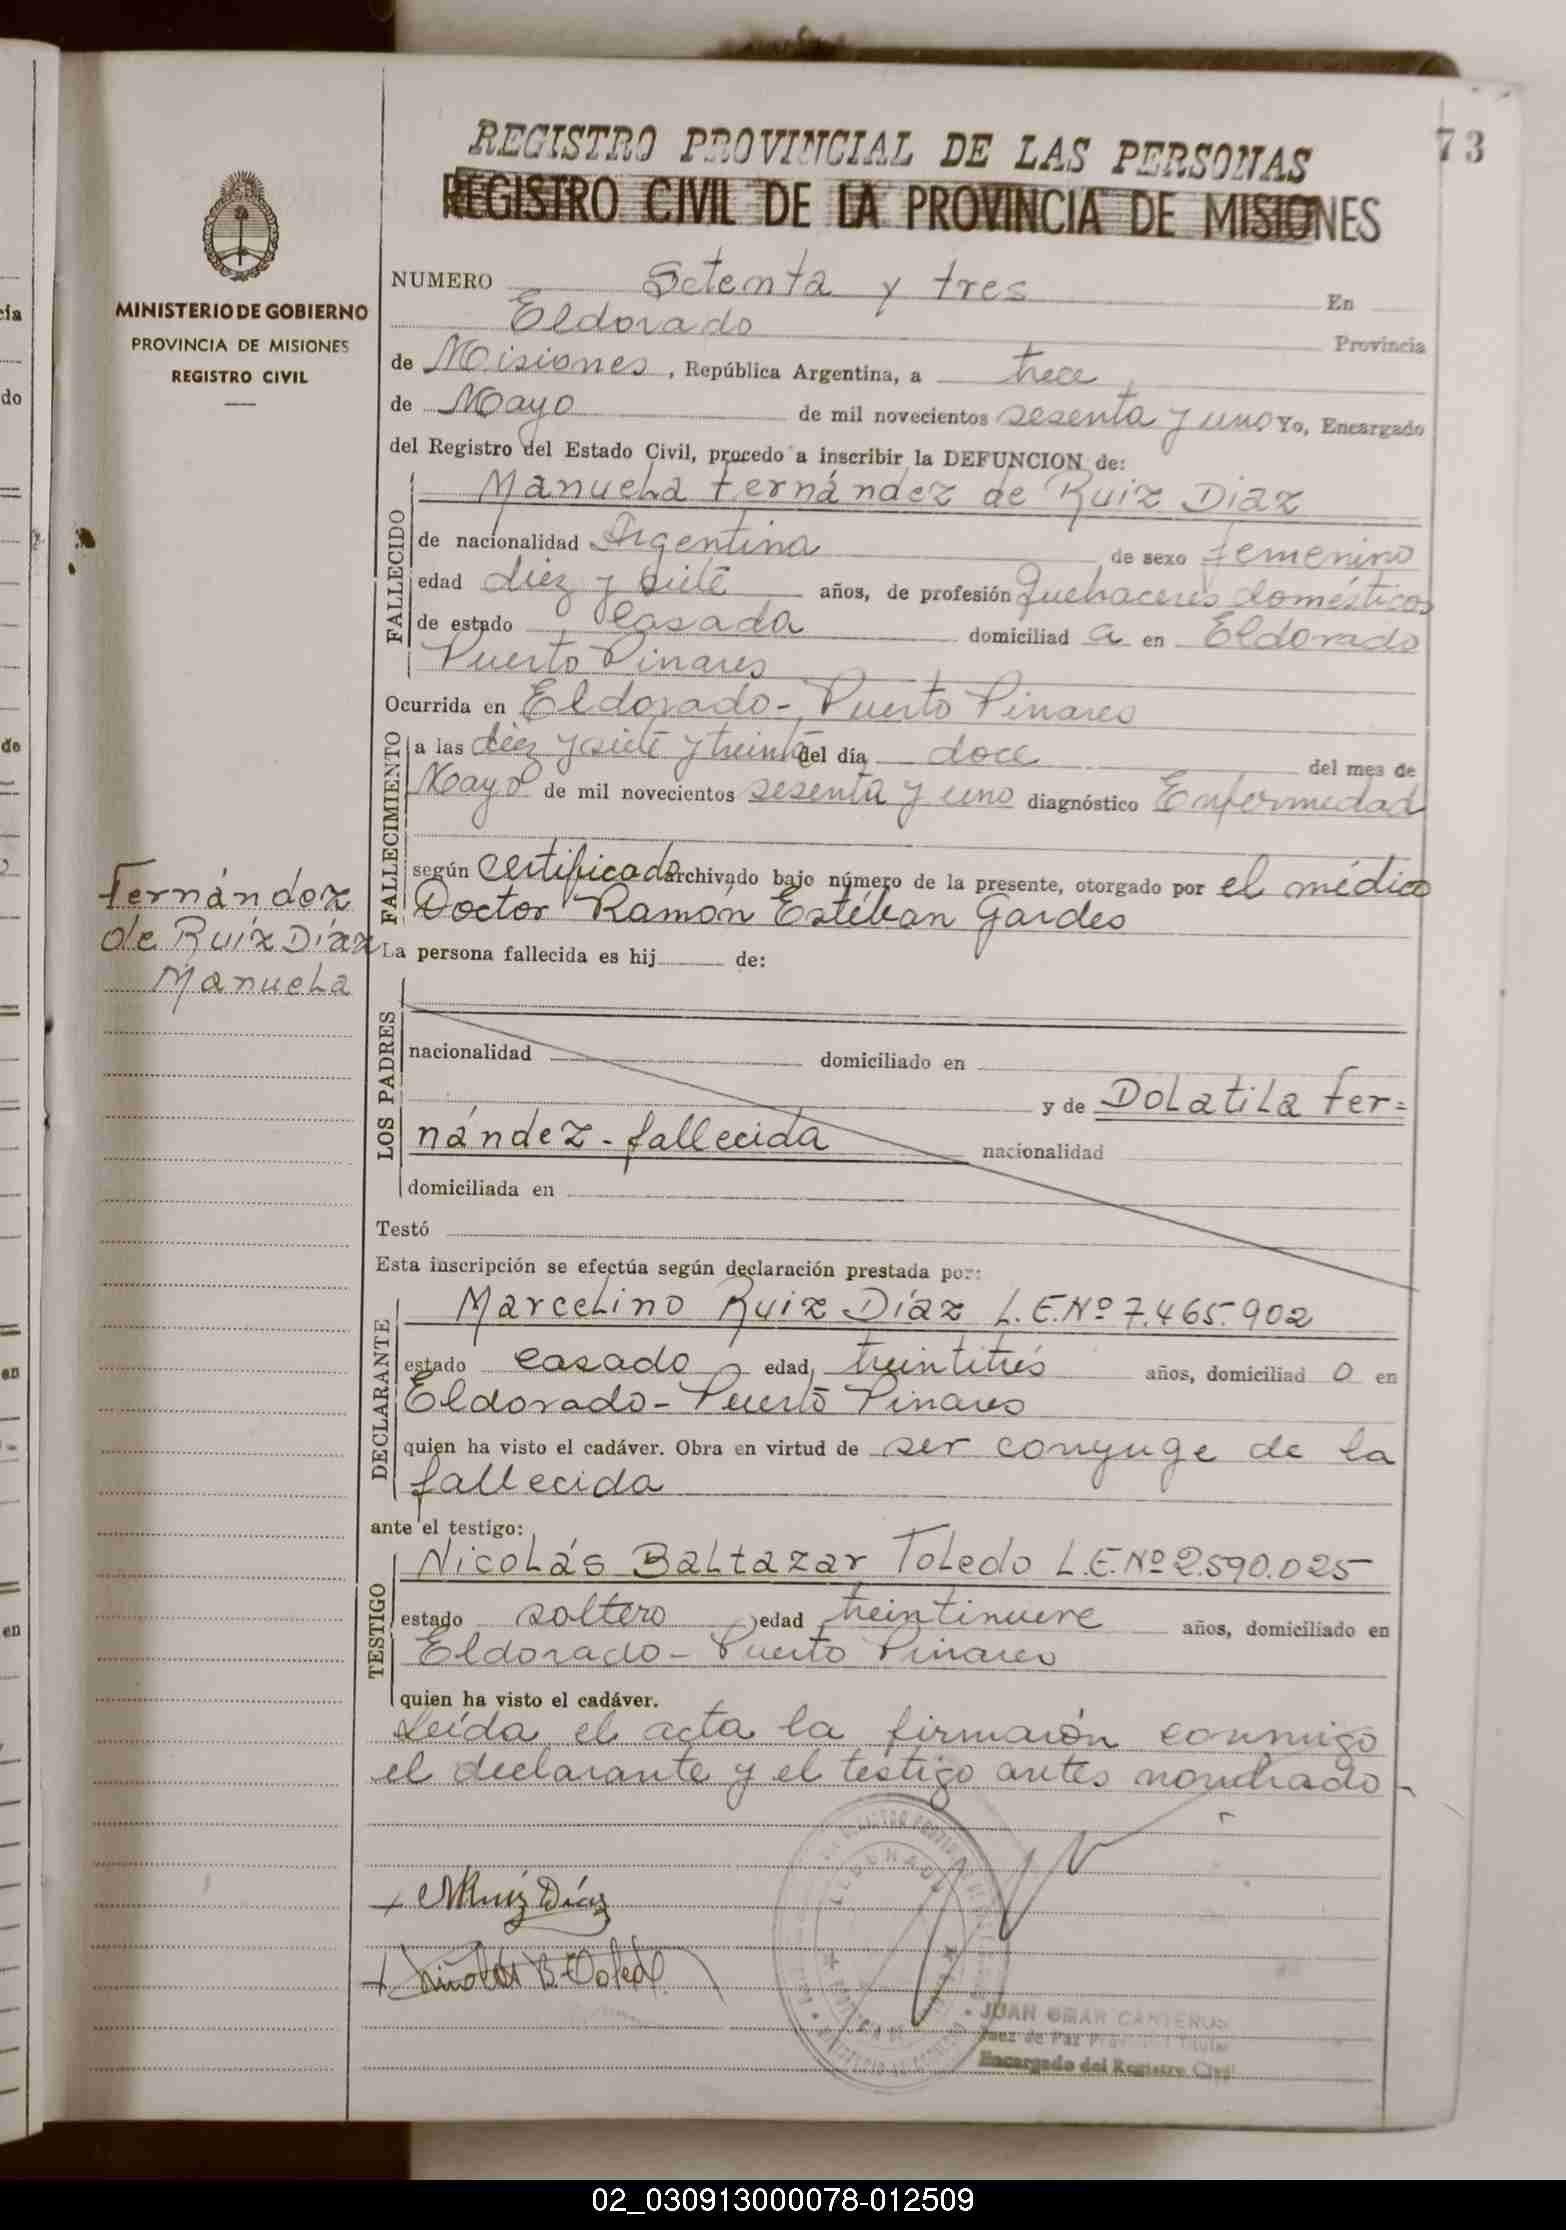 73
REGISTRO PROVINCIAL DE LAS PERSONAS
REGISTRO CIVIL DE LA PROVINCIA DE MISIONES
MINISTERIO DE GOBIERNO
PROVINCIA DE MISIONES
REGISTRO CIVIL
NUMERO Setenta y tres En
Eldorado Provincia
de Misiones, República Argentina, a trece
de Mayo de mil novecientos sesenta y uno Yo, Encargado
del Registro del Estado Civil, procedo a inscribir la DEFUNCION de:
FALLECIDO
Manuela Fernández de Ruiz Diaz
de nacionalidad Argentina de sexo femenino
edad diez y siete años, de profesión Quehaceres domésticos
de estado Casada domiciliad a en Eldorado
Puerto Pinares
Ocurrida en Eldorado - Puerto Pinares
FALLECIMIENTO
a las diez y siete y treinta del día doce del mes de
Mayo de mil novecientos sesenta y uno diagnóstico Enfermedad
según certificado archivado bajo número de la presente, otorgado por el médico
Doctor Ramón Estéban Gardes
Fernández
de Ruíz Díaz
Manuela
La persona fallecida es hij de:
LOS PADRES
nacionalidad domiciliado en
y de Dolatila Fer=
nández - fallecida nacionalidad
domiciliada en
Testó
Esta inscripción se efectúa según declaración prestada por:
DECLARANTE
Marcelino Ruiz Díaz L.E.Nº 7.465.902
estado casado edad, treintitrés años, domiciliad o en
Eldorado - Puerto Pinares
quien ha visto el cadáver. Obra en virtud de ser conyuge de la
fallecida
ante el testigo:
TESTIGO
Nicolás Baltazar Toledo L.E.Nº 2.590.025
estado soltero edad treintinueve años, domiciliado en
Eldorado - Puerto Pinares
quien ha visto el cadáver.
Leída el acta la firmarón conmigo
el declarante y el testigo antes nombrado
M Ruíz Díaz
B. Toledo
ELDORADO
JUAN OMAR CANTEROS
Juez de Paz Provincial Titular
Encargado del Registro Civil
cia
do
de
en
en
02_030913000078-012509